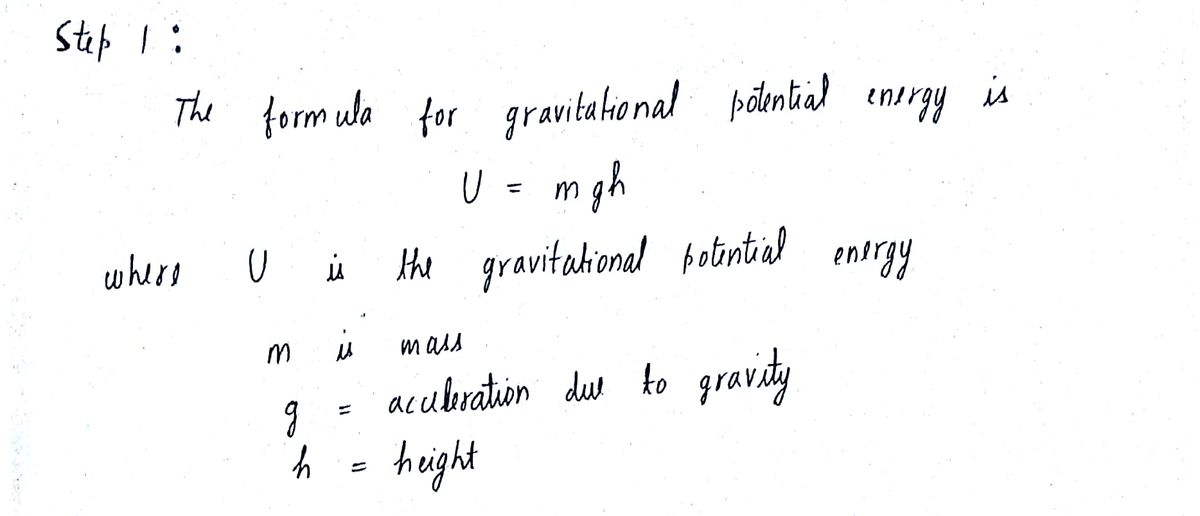 Step 1 :
The formula for gravitational potential energy is
U = mgh
where U is the gravitational potential energy
m is mass
g = acceleration due to gravity
h = height